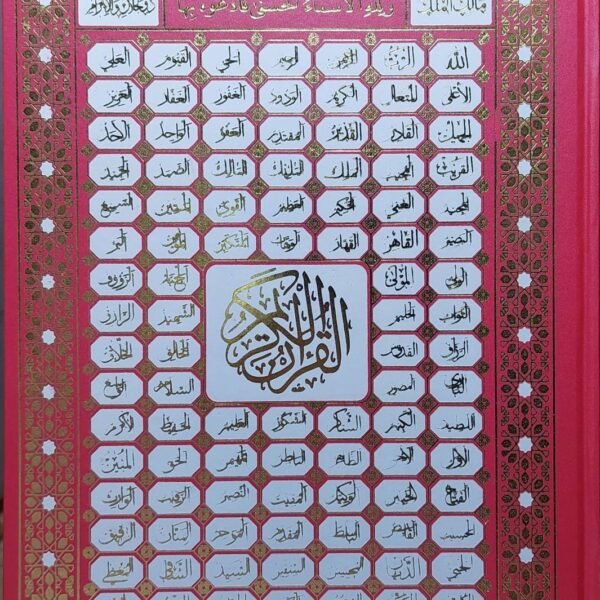 مالك الملك ولله الأسماء الحسنى فادعوه بها ذو الجلال والإكرام
الله الرب الرحمن الرحيم الحي القيوم العلي
الأعلى المتعال الكريم الودود الغفور الغفار العزيز
الجميل القادر القدير المقتدر العفو الواحد الأحد
القريب المجيب الملك المليك المالك الصمد الحميد
المجيد الغني الحكيم العظيم القوي المتين السميع
البصير القاهر القهار المتكبر المؤمن البر
الولي المولى الرؤوف
التواب الحليم الشهيد الرازق
الرزاق القدوس الخالق الخلاق
البارئ المصور السلام الواسع
القرآن الكريم
الكريم الشاكر الشكور العليم الحفيظ الأكرم
الأول الآخر الظاهر الباطن المهيمن الحق المبين
الفتاح الخبير الوكيل المقيت النصير الرقيب الوارث
الحسيب القابض الباسط المقدم المؤخر المنان الرفيق
الحيي الديان المحسن السيد الشافي المعطي